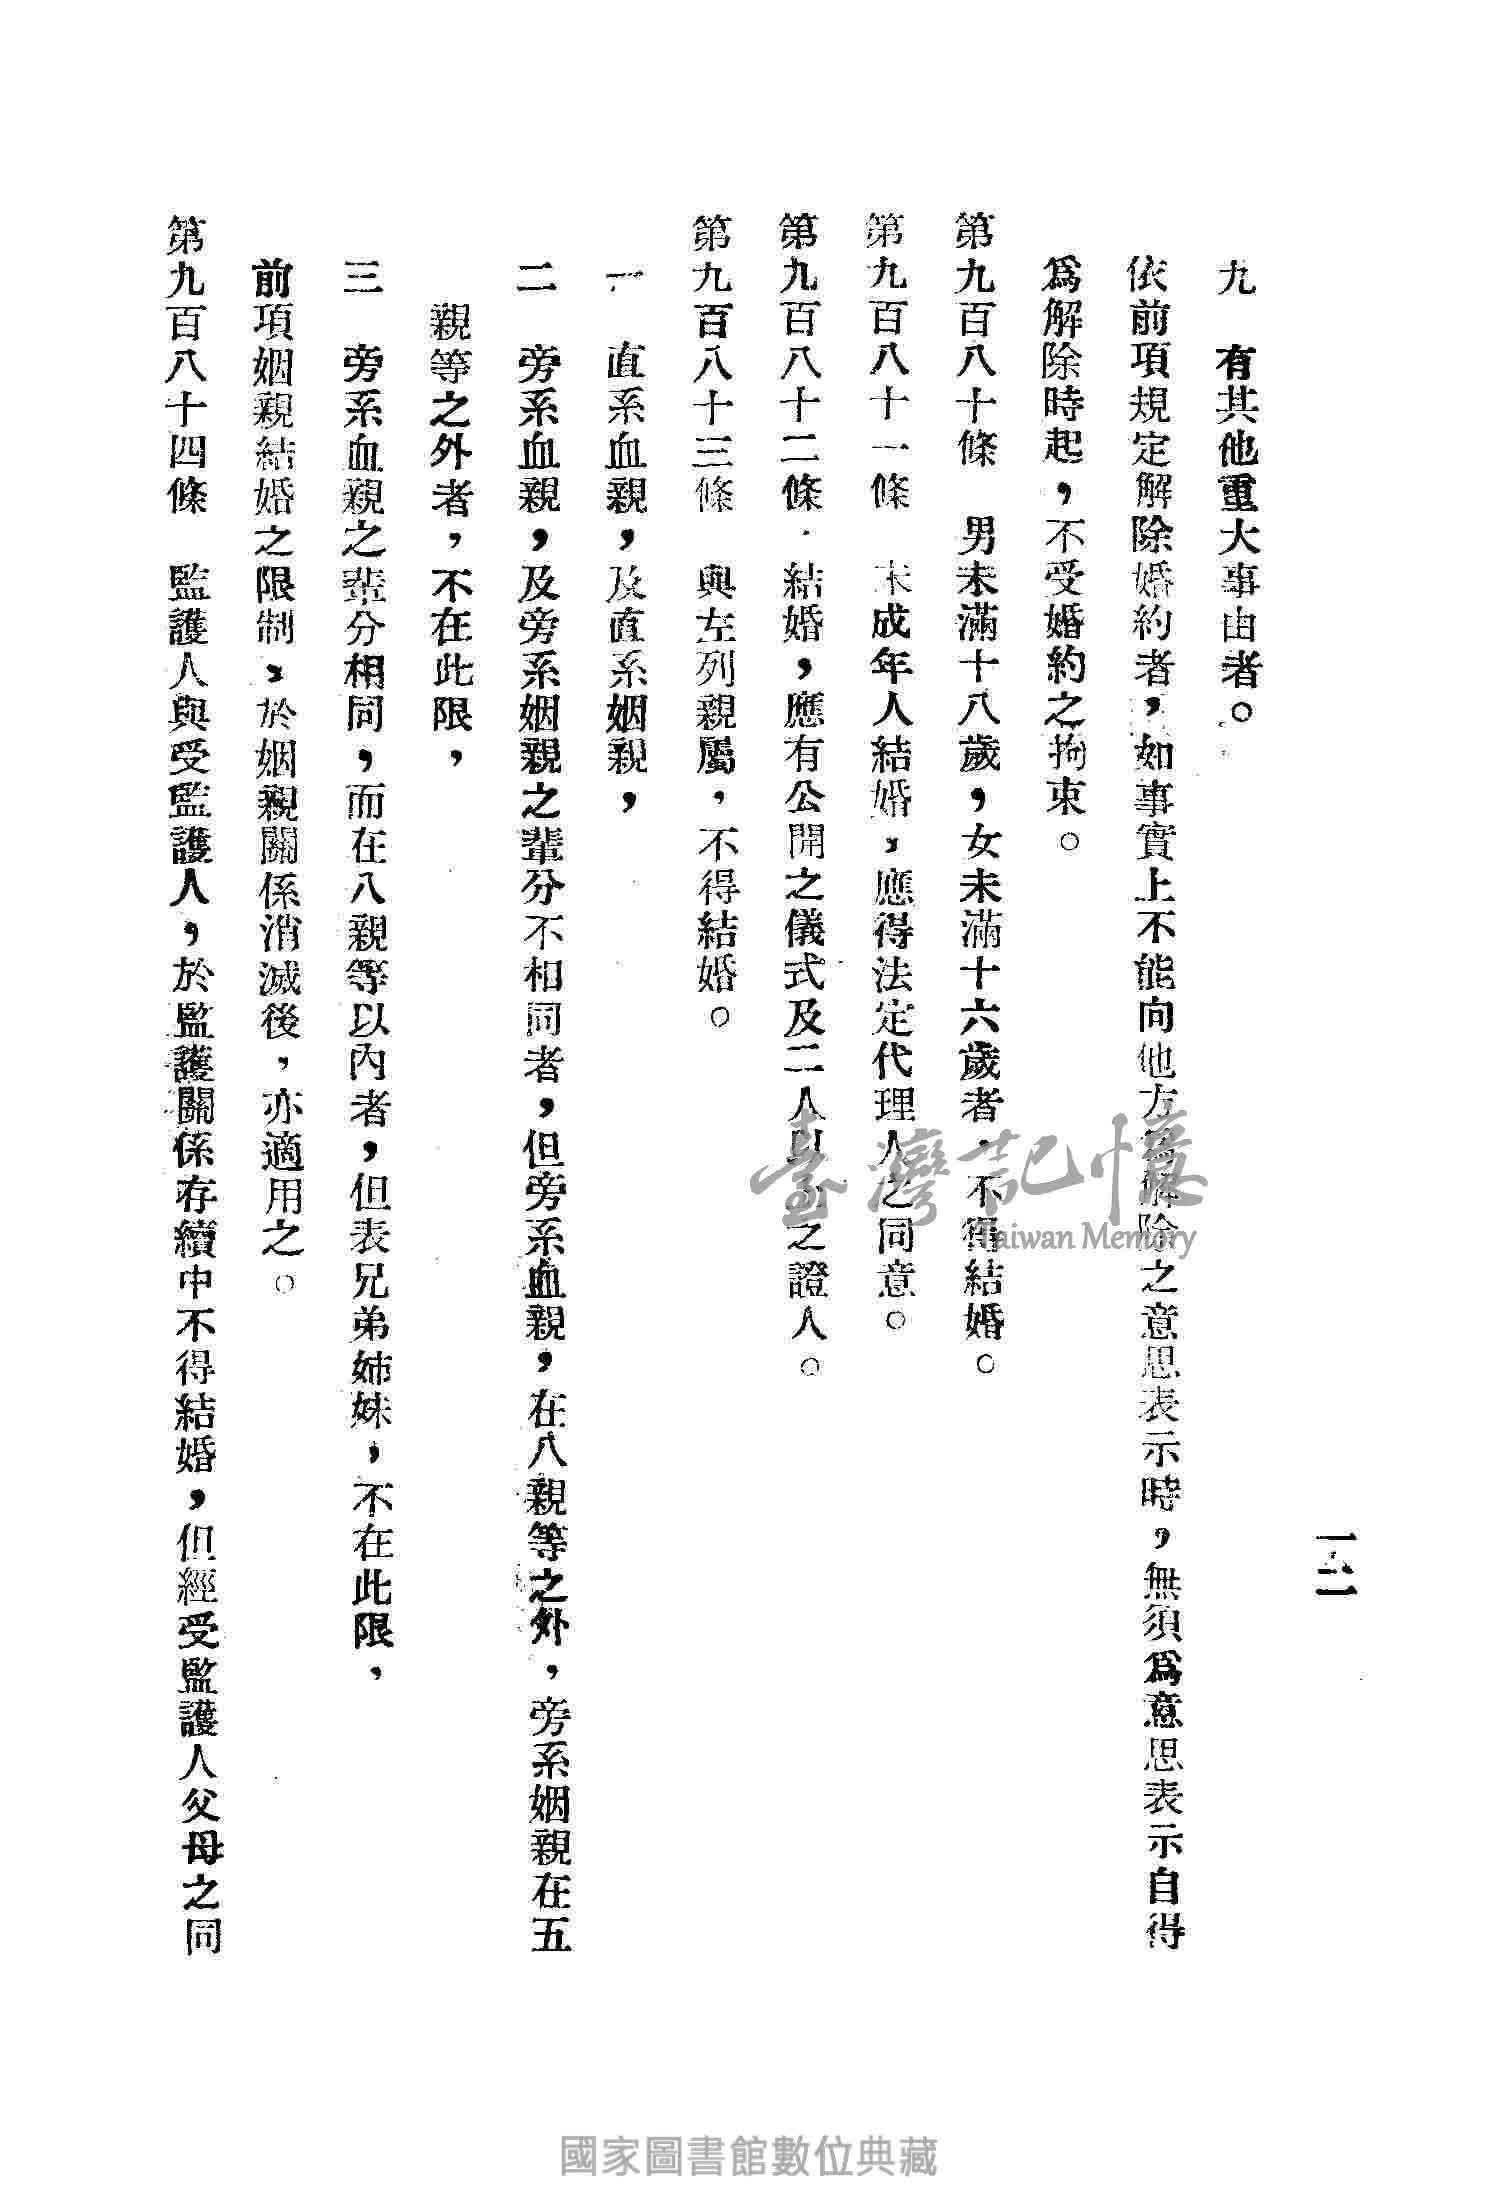 一六二
九　有其他重大事由者。
依前項規定解除婚約者，如事實上不能向他方爲解除之意思表示時，無須爲意思表示自得
爲解除時起，不受婚約之拘束。
第九百八十條　男未滿十八歲，女未滿十六歲者，不得結婚。
第九百八十一條　未成年人結婚，應得法定代理人之同意。
第九百八十二條　結婚，應有公開之儀式及二人以上之證人。
第九百八十三條　與左列親屬，不得結婚。
一　直系血親，及直系姻親，
二　旁系血親，及旁系姻親之輩分不相同者，但旁系血親，在八親等之外，旁系姻親在五
親等之外者，不在此限，
三　旁系血親之輩分相同，而在八親等以內者，但表兄弟姊妹，不在此限，
前項姻親結婚之限制，於姻親關係消滅後，亦適用之。
第九百八十四條　監護人與受監護人，於監護關係存續中不得結婚，但經受監護人父母之同
臺灣記憶
Taiwan Memory
國家圖書館數位典藏